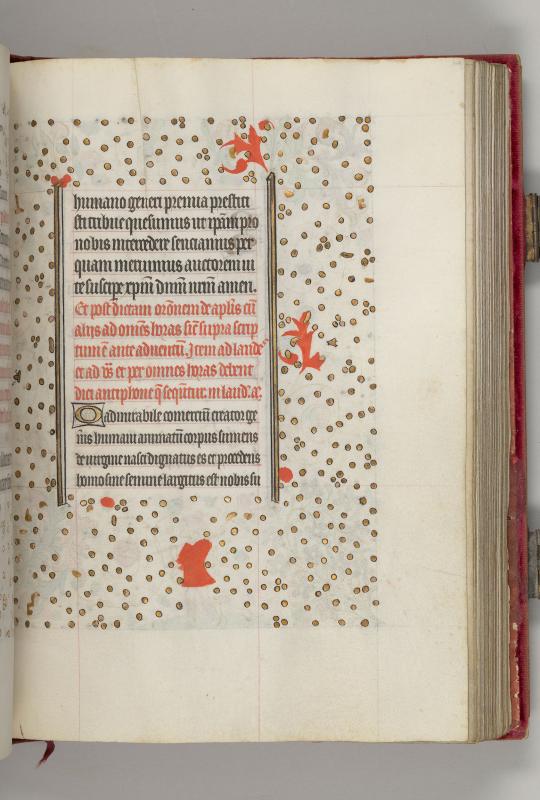 humano generi premia prestiti
sti tribue quesumus ut ipam pro
nobis intercedere senciamus per
quam meruimus auctorem ui
te suscipe xpm dnm nrm amen.
Et post dictam oronem de aplis cu
alijs ad omes horas sut supra scrip
tum e ante aduentu. Item ad laudes
et ad vs et per omnes horas debent
dici antiphone q sequntur. in laud. a.
O admirabile comerciu creator ge
nis humani animatu corpus sumens
de uirgine nasci dignatus es et procedens
homo sine semine largitus est nobis su